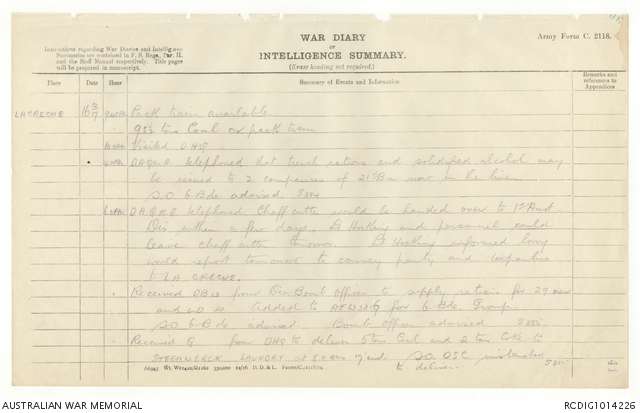 WAR DIARY
or
INTELLIGENCE SUMMARY.
(Erase heading not required.)
Army Form C. 2118.
Instructions regarding War Diaries and Intelligence
Summaries are contained in F. S. Regs., Part II.
and the Staff Manual respectively. Title pages
will be prepared in manuscript.
Place Date Hour Summary of Events and Information Remarks and references to Appendices
LA CRECHE 16 3/17 Pack train available
9 3/4 tons Coal ex pack train
Visited DHQ
telephoned that trench rations and solidified alcohol may
be issued to 2 companies of 21st Bn now in the line
S.O 6 Bde advised
telephoned Chaff cutter would be handed over to 1st Aust
Div within a few days. Lt Hosking and personnel could
leave chaff cutter tomorrow. Lt Hosking informed lorry
would report tomorrow to convey party and
to LA CRECHE.
Received from Div Bomb Officer to supply rations for 29 men
and added to for 6 Bde Group.
S.O 6 Bde advised Bomb officer advised
Received from DHQ to deliver 5 tons Coal and 2 tons Coke to
STEENWERCK LAUNDRY at S.O. DSC instructed
to deliver.